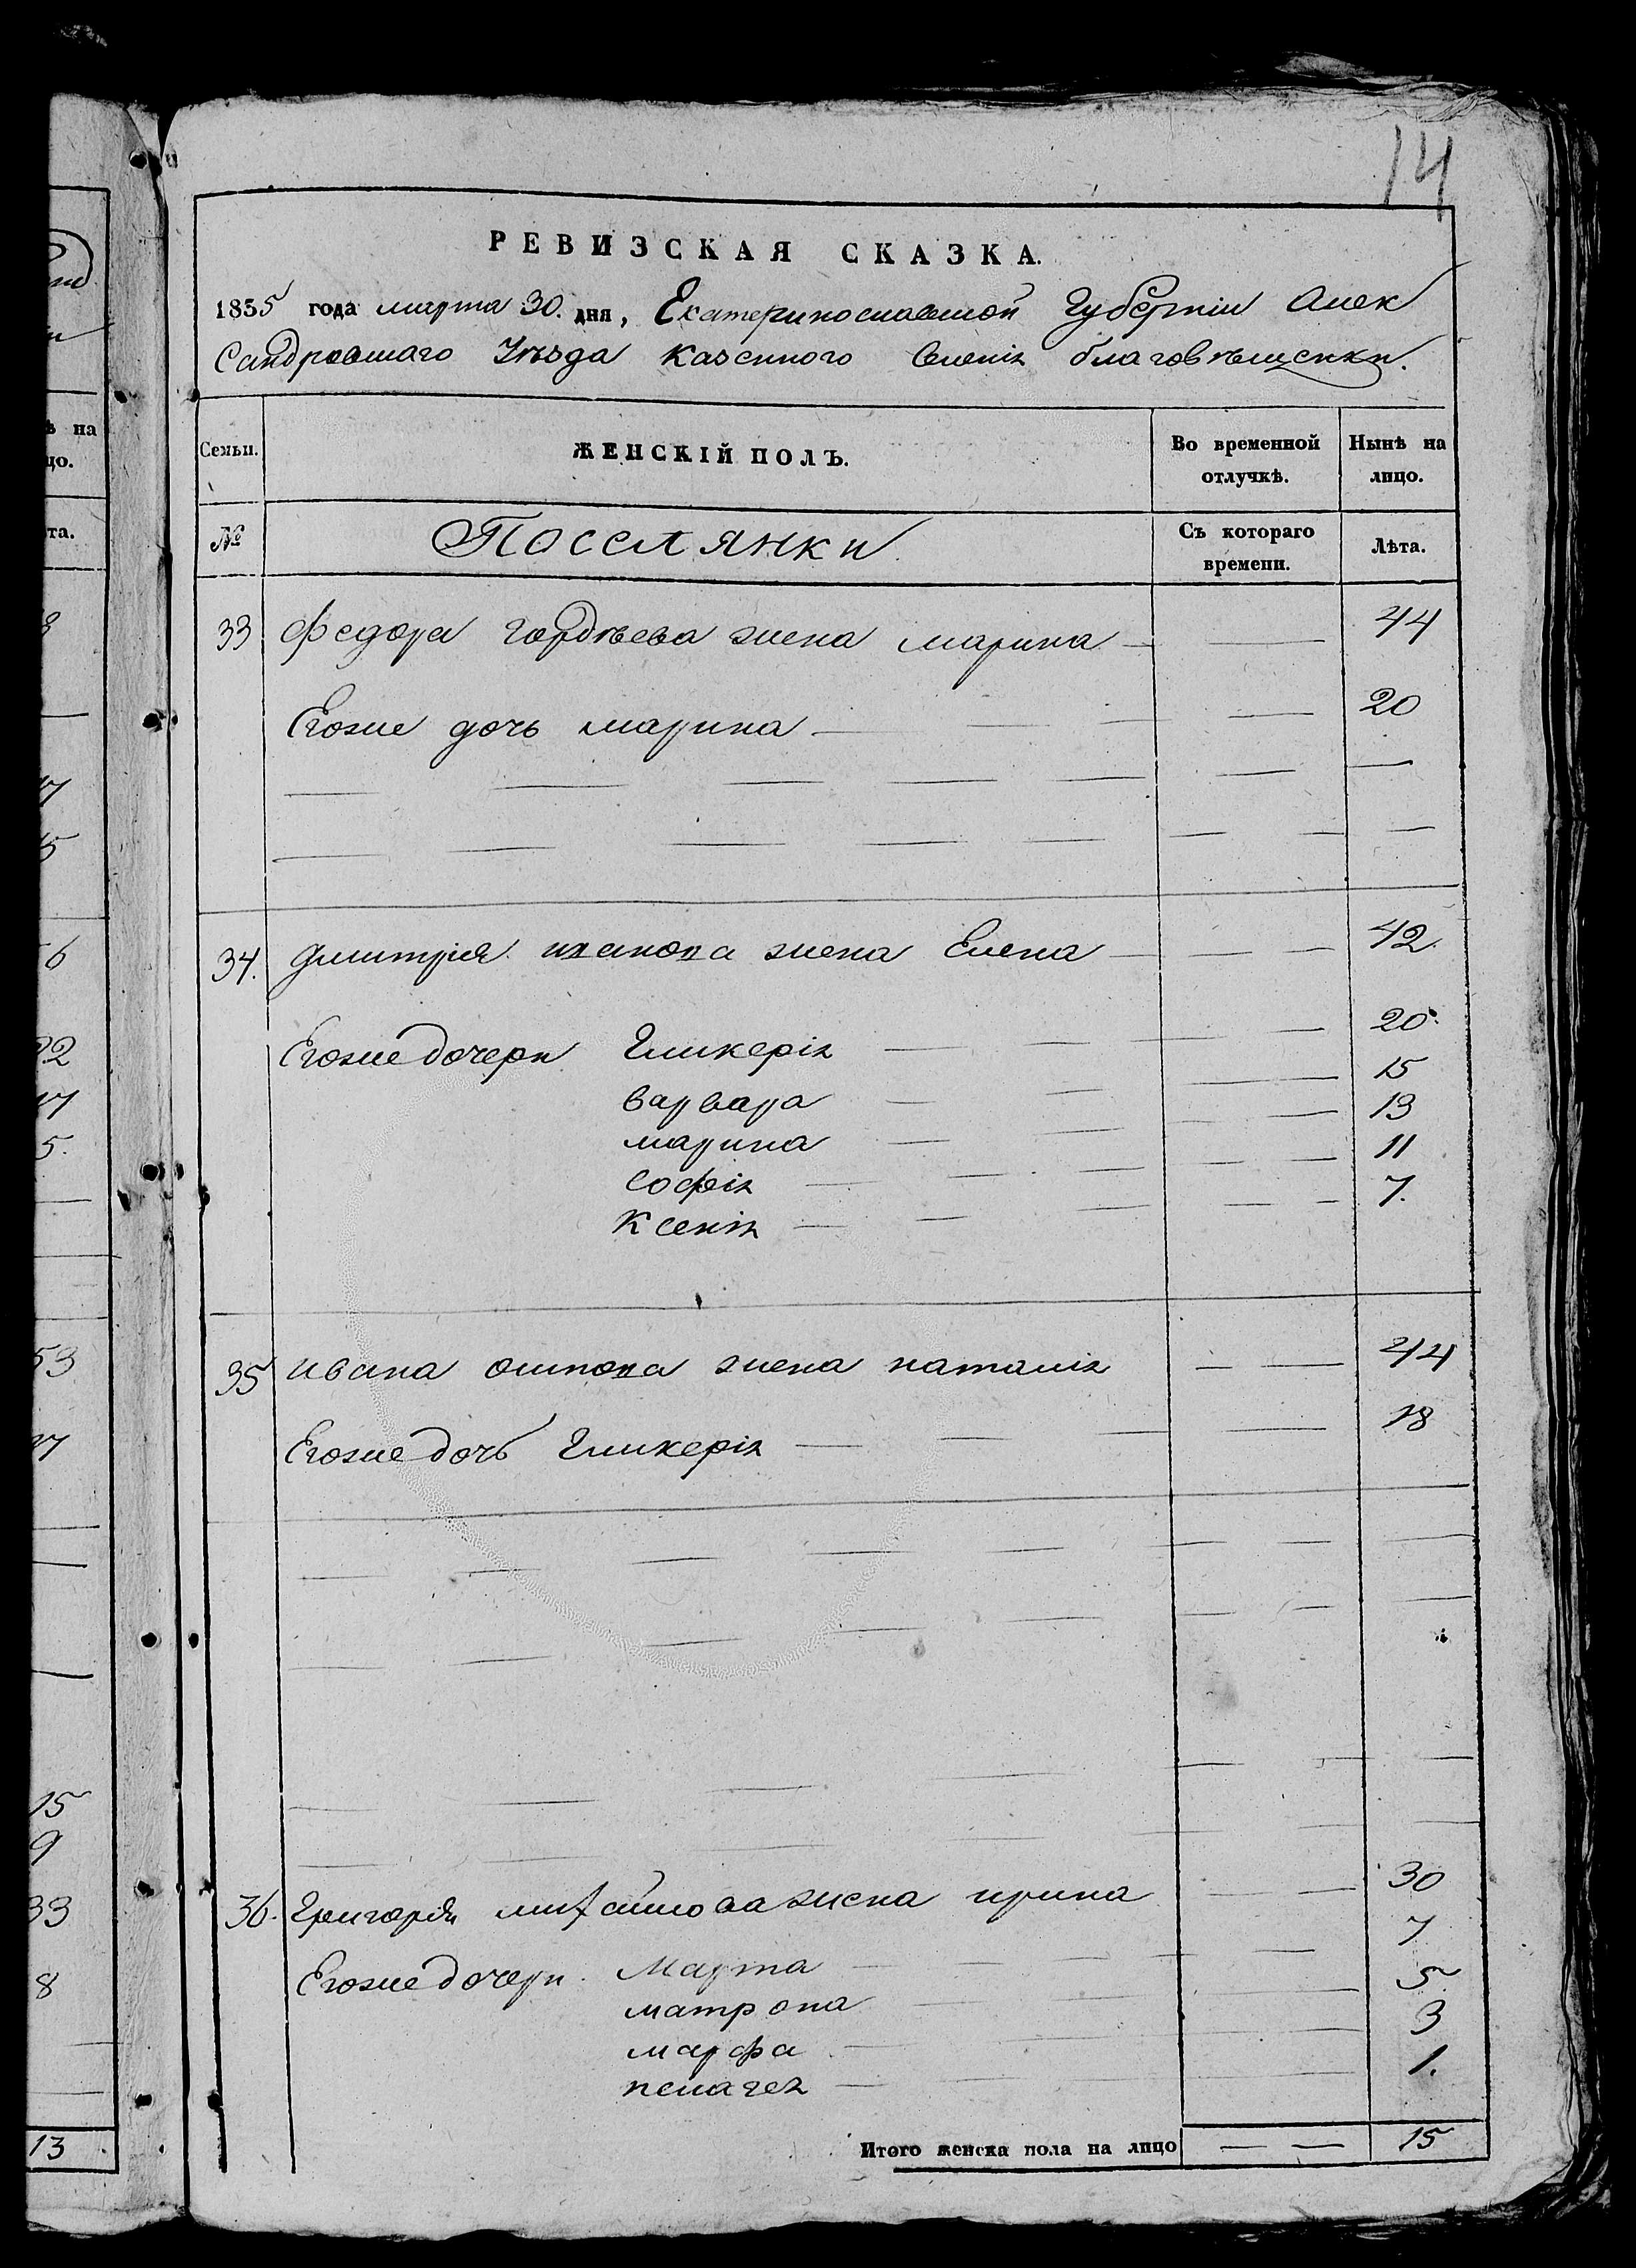 14
РЕВИЗСКАЯ СКАЗКА.
1835 года марта 30. дня, Екатеринославской Губерніи Алек
сандровскаго Уѣзда казенного селенія благовѣщенки.
Семьи.
ЖЕНСКІЙ ПОЛЪ.
Во временной отлучкѣ.
Нынѣ на лицо.
№
Поселянки
Съ котораго времени.
Лѣта.
33 Федора гордѣева жена марина — 44
Егоже дочь марина — 20
34. дмитрія иванова жена Елена — 42.
Егоже дочери Гликерія — 20.
варвара — 15
марина — 13
софія — 11
Ксенія — 7.
35 ивана осипова жена наталія — 44
Егоже дочь Гликерія — 18
36. Григорія михайлова жена ирина — 30
Егоже дочери. Марта — 7
матрона — 5.
марфа — 3
пелагея — 1.
Итого женска пола на лицо — 15
на
цо.
та.
8
17
15
6
22
17
5.
53
15
9
33
8
13